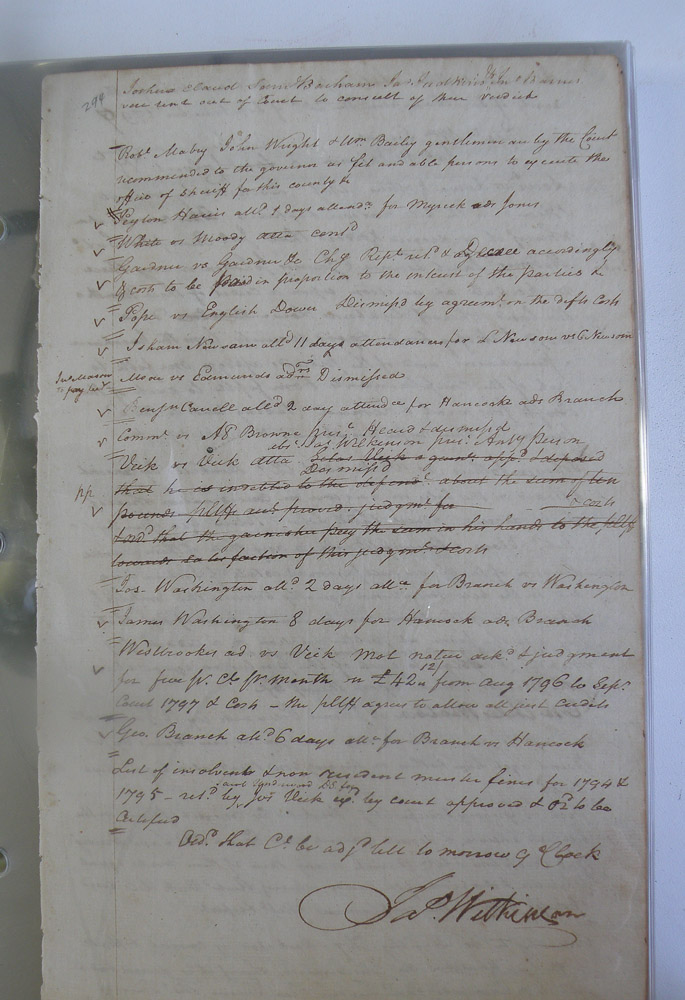 294
Joshua Claud Saml Barham Jas
were sent out of Court to consult of their verdict
Robt Mabry John Wright & Wm Baily gentlemen are by the Court
recommended to the governor as fit and able persons to execute the
office of Sheriff for this county &
Peyton Harris alld 9 days attendce for Myrick ads Jones
White vs Moody atta contd
Gardner vs Gardner &c Chy Rept retd & decree accordingly
& costs to be paid in proportion to the interest of the parties &
Pope vs English Dower Dismissd by agreemt on the defts costs
Isham Newsum alld 11 days attendances for L Newsom vs C Newsom
Moore vs Edmunds adrs Dismissed
to pay
Benjn Cavell alld 2 day attendce for Hancocke ads Branch
Commw vs Browne Heard & dismissd
Jas Wilkinson
Vick vs Vick atta garn. appd & deposed
Dismissd
that he is indebted to the defendt about the sum of ten
pp
pounds pltff acct proved. judgmt for costs
& ord that the garnishee pay the sum in his hands to the pltff
towards satisfaction of this judgmt & costs
Jos. Washington alld 2 days attce for Branch vs Washington
James Washington 8 days for Hancock ads Branch
Westbrookes ad vs Vick mot notice ackd & judgment
for five pr Ct pr month on £42 12/ from Aug 1796 to Sept
Court 1797 & costs - the pltff agrees to allow all just credits
Geo. Branch alld 6 days attce for Branch vs Hancock
List of insolvents & non resident muster fines for 1794 &
1795 - retd by Jos Vick by court approved & Od to be
certified
Ord. that Ct be adjd till to morrow 9 Clock
Jas Wilkinson